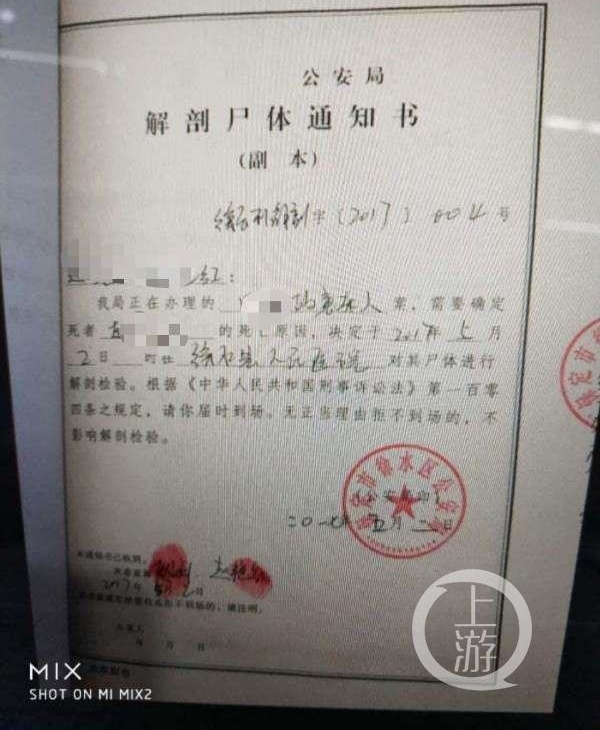 公安局
解剖尸体通知书
（副 本）
字〔2017〕004号
红：
我局正在办理的 人 案，需要确定
死者 的死亡原因，决定于2017年5月
2日 时在徐水县人民医院对其尸体进行
解剖检验。根据《中华人民共和国刑事诉讼法》第一百零
四条之规定，请你届时到场。无正当理由拒不到场的，不
影响解剖检验。
保定市徐水区公安局
二〇一七年五月二日
本通知书已收到。
死者家属
2017年5月2日
年 月 日
上游
MIX
SHOT ON MI MIX2